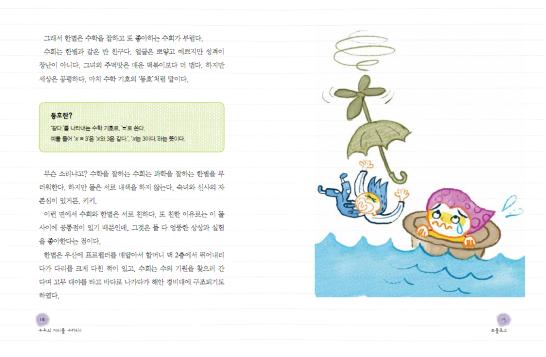 그래서 한별은 수학을 잘하고 또 좋아하는 수희가 부럽다.
수희는 한별과 같은 반 친구다. 얼굴은 뽀얗고 예쁘지만 성격이
장난이 아니다. 그녀의 주먹맛은 매운 떡볶이보다 더 맵다. 하지만
세상은 공평하다. 마치 수학 기호의 '등호'처럼 말이다.
등호란?
'같다'를 나타내는 수학 기호로, '='로 쓴다.
예를 들어 'x = 3'은 'x와 3은 같다', 'x는 3이다'라는 뜻이다.
무슨 소리냐고? 수학을 잘하는 수희는 과학을 잘하는 한별을 부
러워한다. 하지만 둘은 서로 내색을 하지 않는다. 숙녀와 신사의 자
존심이 있거든, 키키.
이런 면에서 수희와 한별은 서로 친하다. 또 친한 이유로는 이 둘
사이에 공통점이 있기 때문인데, 그것은 둘 다 엉뚱한 상상과 실험
을 좋아한다는 점이다.
한별은 우산에 프로펠러를 매달아서 할머니 댁 2층에서 뛰어내리
다가 다리를 크게 다친 적이 있고, 수희는 수의 기원을 찾으러 간
다며 고무 대야를 타고 바다로 나가다가 해안 경비대에 구조되기도
하였다.
프롤로그